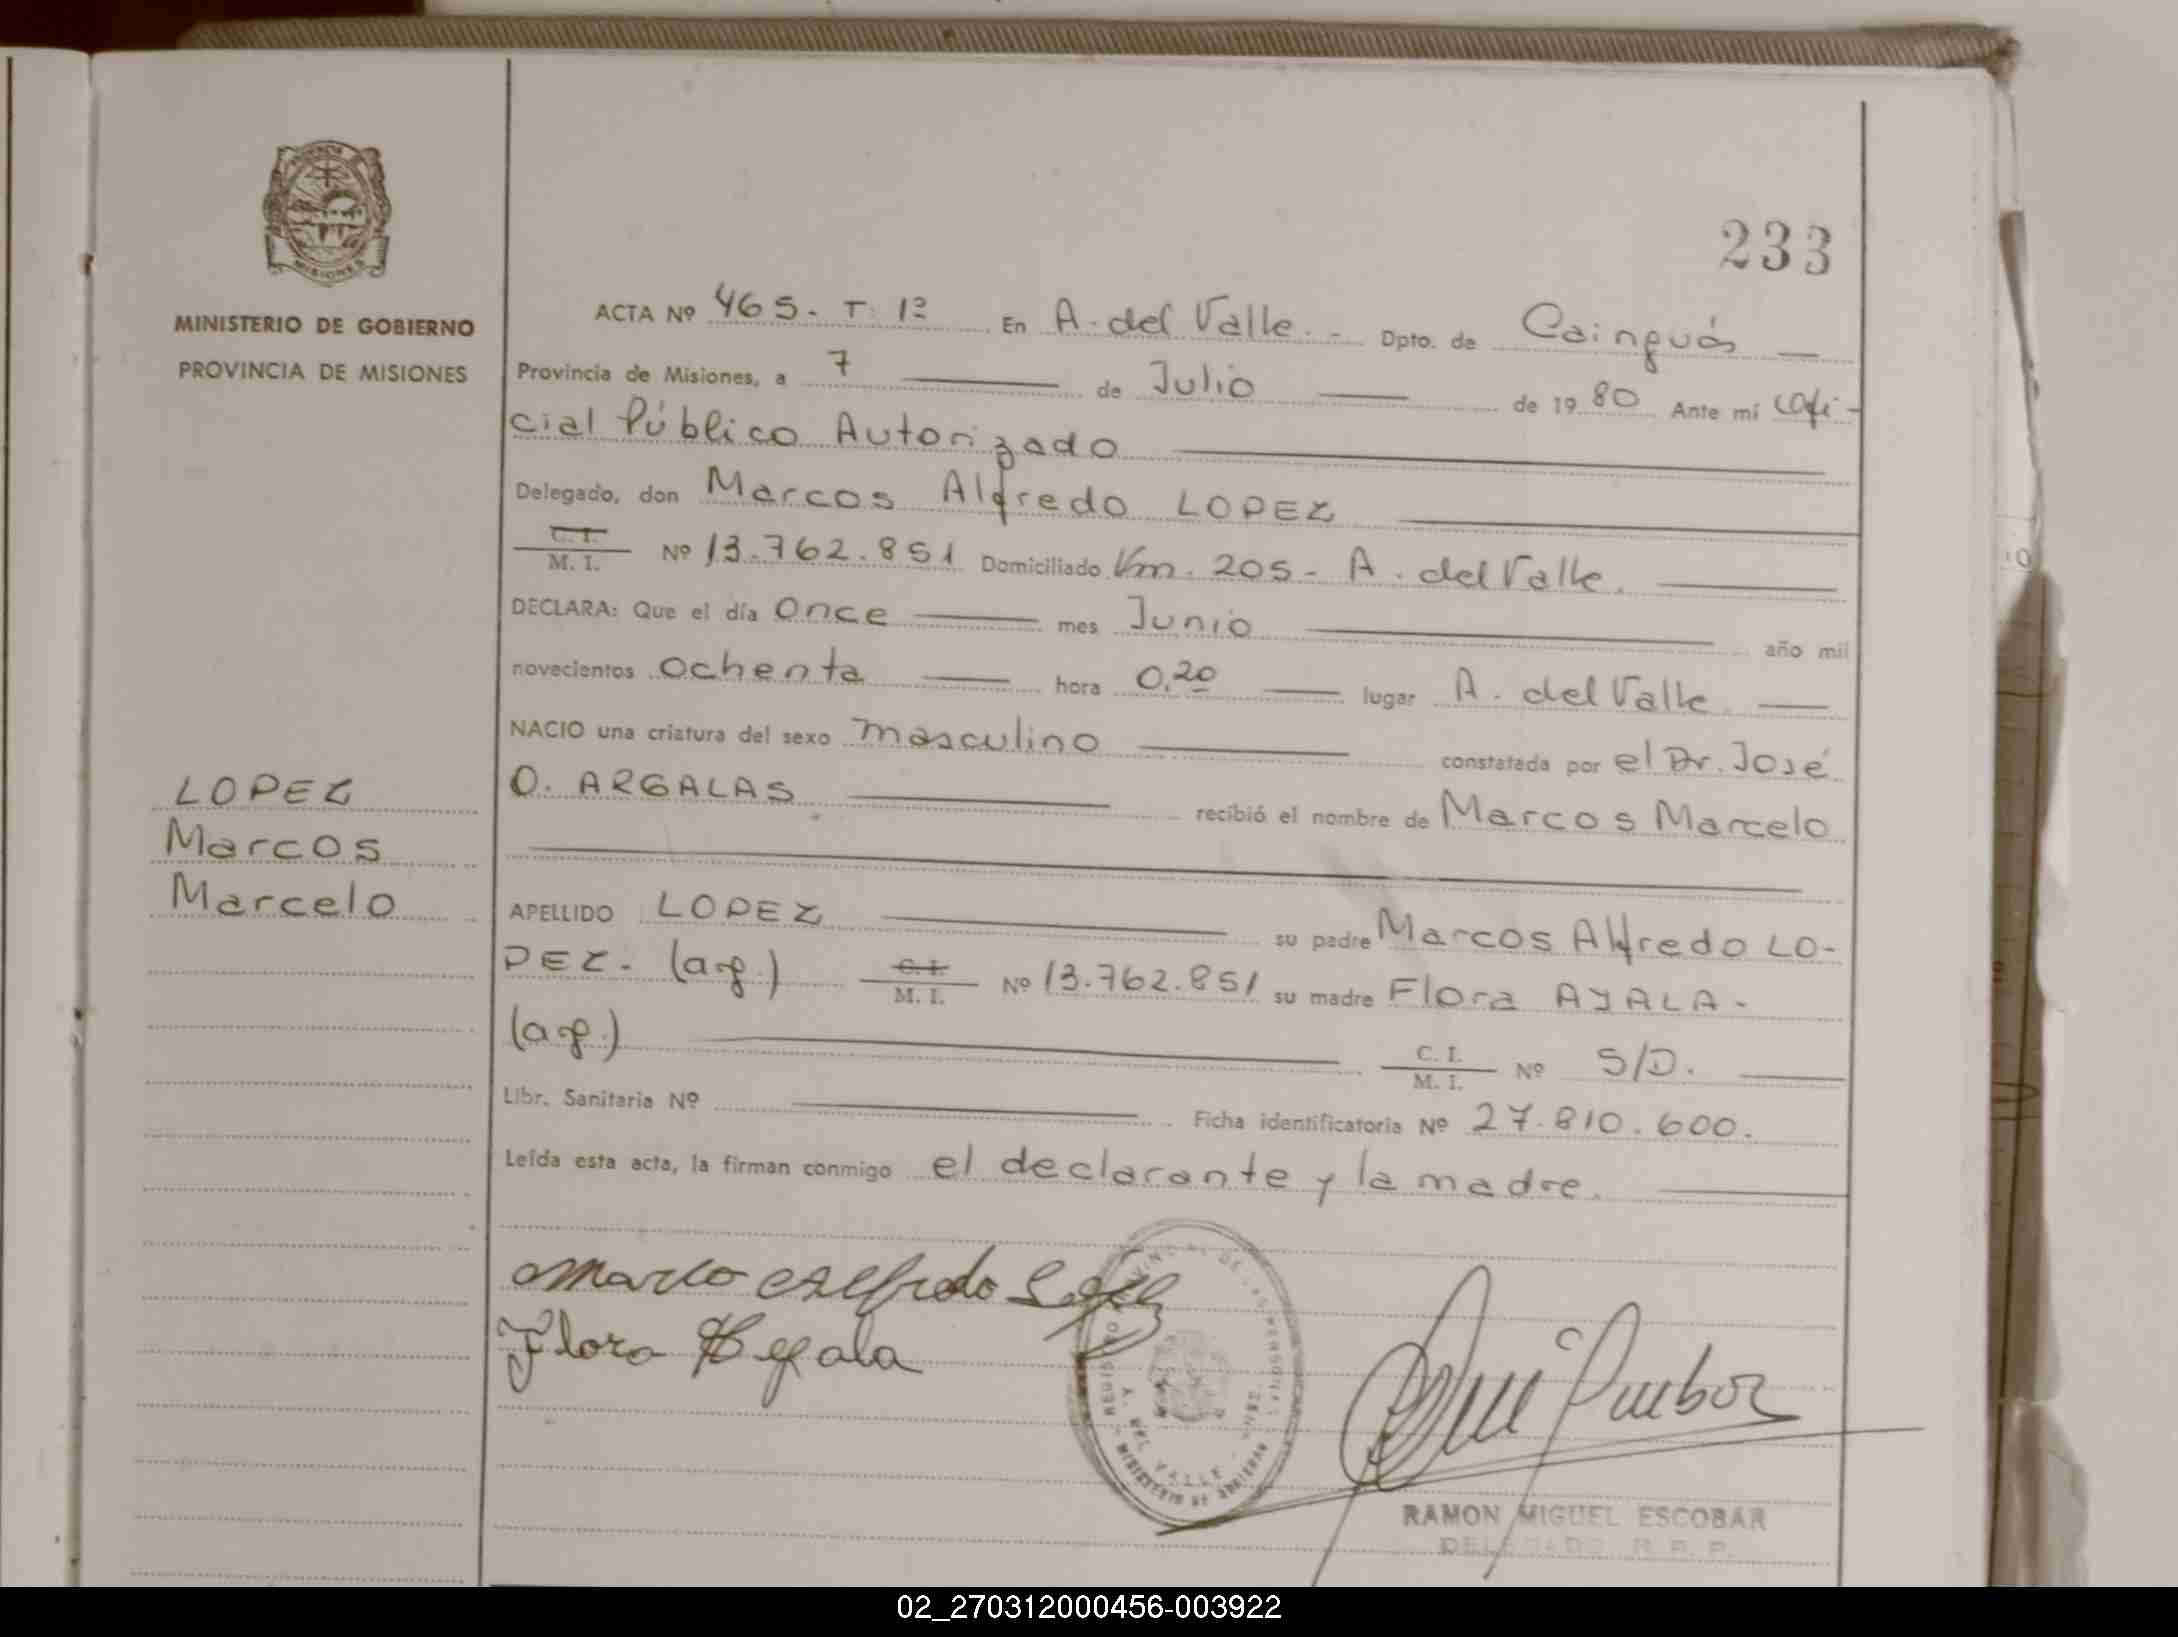 233
MISIONES
MINISTERIO DE GOBIERNO
PROVINCIA DE MISIONES
LOPEZ
Marcos
Marcelo
ACTA Nº 465. T: 1º En A. del Valle. - Dpto. de Cainguás
Provincia de Misiones, a 7 de Julio de 1980 Ante mí Ofi-
cial Público Autorizado
Delegado, don Marcos Alfredo LOPEZ
C. I. / M. I. Nº 13.762.851 Domiciliado Km. 205 - A. del Valle.
DECLARA: Que el día Once mes Junio año mil
novecientos Ochenta hora 0,20 lugar A. del Valle
NACIO una criatura del sexo masculino constatada por el Dr. José
O. ARGALAS recibió el nombre de Marcos Marcelo
APELLIDO LOPEZ su padre Marcos Alfredo LO-
PEZ. (arg.) C. I. / M. I. Nº 13.762.851 su madre Flora AYALA -
(arg.) C. I. / M. I. Nº S/D.
Libr. Sanitaria Nº Ficha identificatoria Nº 27.810.600.
Leída esta acta, la firman conmigo el declarante y la madre.
Marco Alfredo Lopez
Flora Ayala
A. DEL VALLE
RAMON MIGUEL ESCOBAR
DELEGADO R. P. P.
02_270312000456-003922